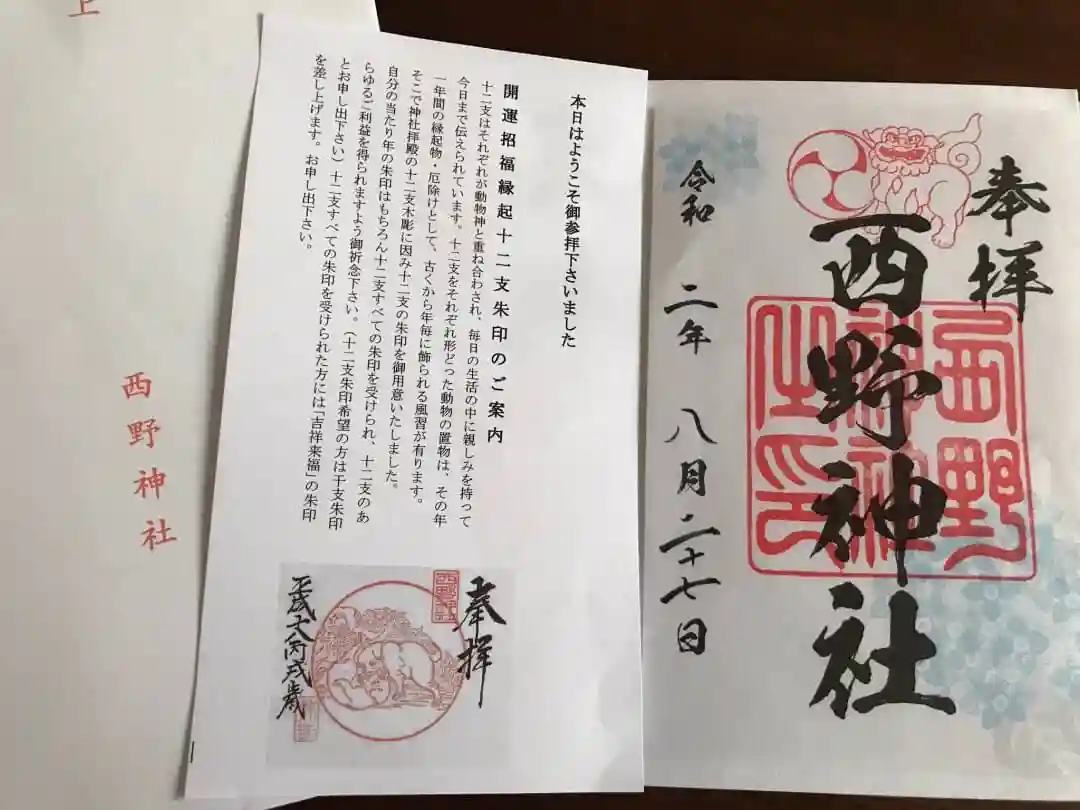 奉拝
西野神社
西野
神社
之印
令和 二年 八月 二十七日
本日はようこそ御参拝下さいました
開運招福縁起十二支朱印のご案内
十二支はそれぞれが動物神と重ね合わされ、毎日の生活の中に親しみを持って
今日まで伝えられています。十二支をそれぞれ形どった動物の置物は、その年
一年間の縁起物・厄除けとして、古くから年毎に飾られる風習が有ります。
そこで神社拝殿の十二支木彫に因み十二支の朱印を御用意いたしました。
自分の当たり年の朱印はもちろん十二支すべての朱印を受けられ、十二支のあ
らゆるご利益を得られますよう御祈念下さい。(十二支朱印希望の方は干支朱印
とお申し出下さい)十二支すべての朱印を受けられた方には「吉祥来福」の朱印
を差し上げます。お申し出下さい。
奉拝
平成十八丙戌歳
上
西野神社